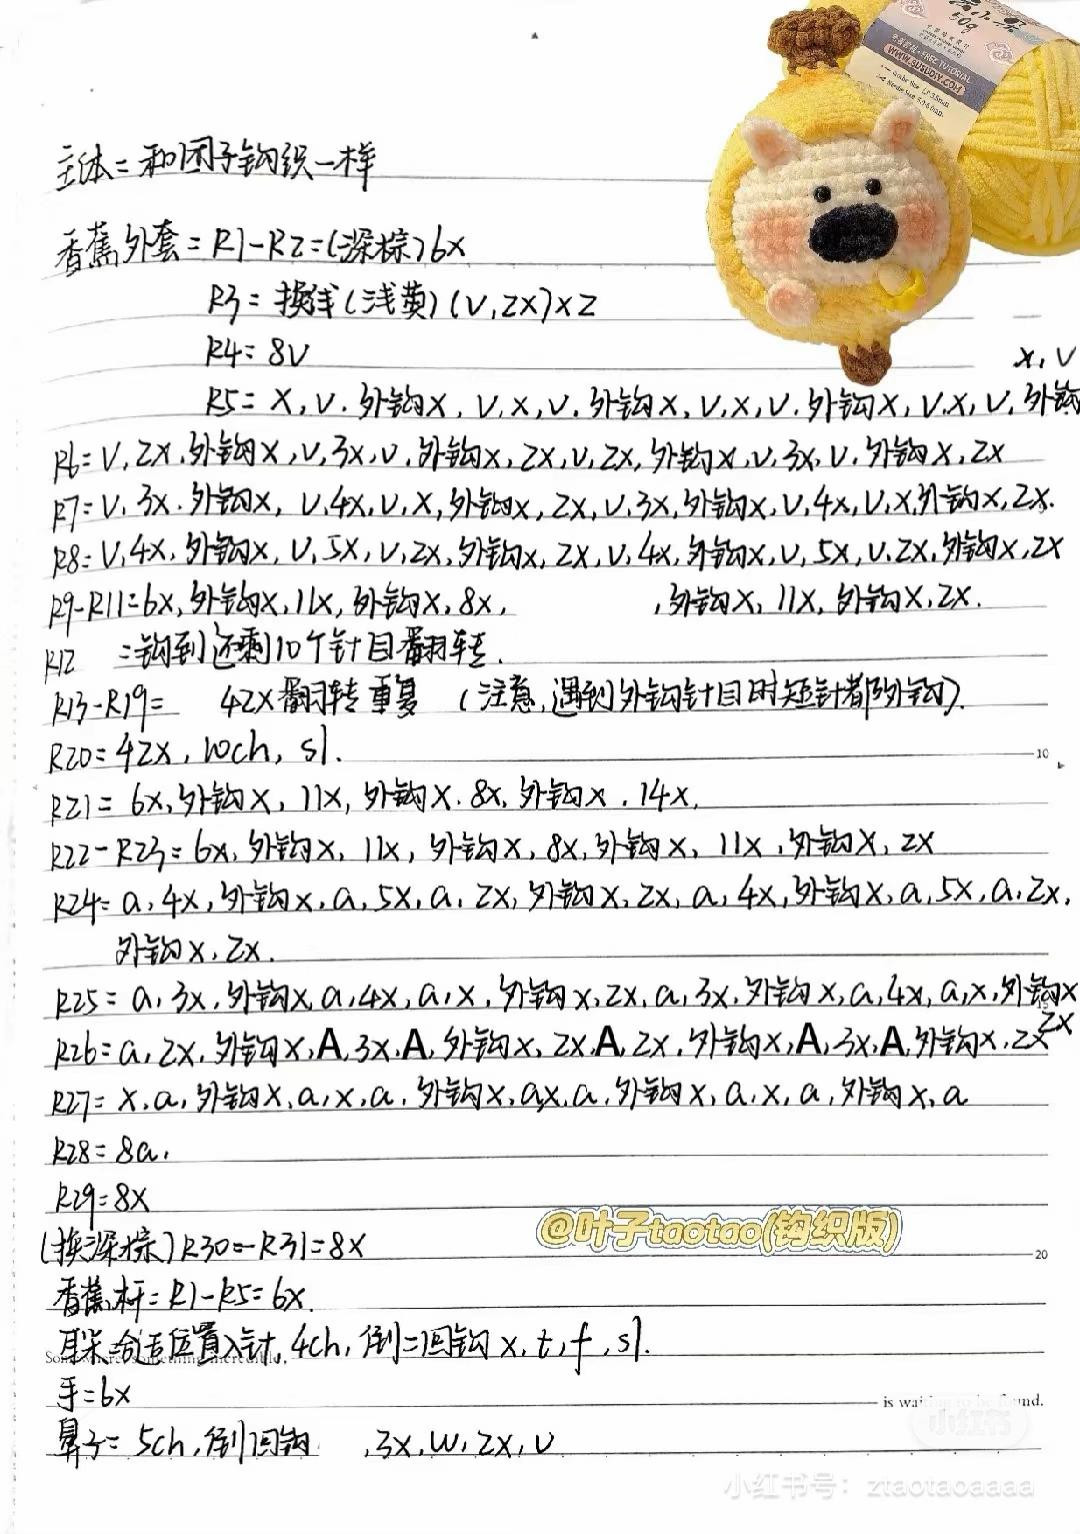 苏小朵
50g
FREE TUTORIAL
WWW.SUSUDIY.COM
主体=和团子钩织一样
香蕉外套=R1-R2=(深棕)6x
R3=换线(浅黄)(v,2x)x2
R4=8v
x,v
R5=x,v.外钩x,v,x,v.外钩x,v,x,v.外钩x,v.x,v,外钩
R6=v,2x.外钩x,v,3x,v.外钩x,2x,v,2x,外钩x,v,3x,v.外钩x,2x
R7=v,3x.外钩x,v,4x,v,x,外钩x,2x,v,3x,外钩x,v,4x,v,x,外钩x,2x.
R8=v,4x,外钩x,v,5x,v,2x,外钩x,2x,v,4x,外钩x,v,5x,v.2x,外钩x,2x
R9-R11=6x,外钩x,11x,外钩x,8x, ,外钩x,11x,外钩x,2x.
R12 =钩到还剩10个针目翻转.
R13-R19= 42x翻转重复 (注意,遇到外钩针目时短针都外钩).
R20=42x,10ch,sl.
10
R21=6x,外钩x,11x,外钩x.8x,外钩x.14x,
R22-R23=6x,外钩x,11x,外钩x,8x,外钩x,11x,外钩x,2x
R24=a,4x,外钩x,a,5x,a,2x,外钩x,2x,a,4x,外钩x,a,5x,a,2x,
外钩x,2x.
R25=a,3x,外钩x,a,4x,a,x,外钩x,2x,a,3x,外钩x,a,4x,a,x,外钩x
2x
R26=a,2x,外钩x,A,3x,A,外钩x,2x,A,2x,外钩x,A,3x,A,外钩x,2x
R27=x,a,外钩x,a,x,a,外钩x,a,x,a,外钩x,a,x,a,外钩x,a
R28=8a,
R29=8x
@叶子taotao(钩织版)
(换深棕)R30=-R31=8x
20
香蕉杆=R1-R5=6x.
耳朵=合适位置入针,4ch,倒二回钩x,t,f,sl.
Somewhere, something incredible,
手=6x
is waiting to be found.
小红书
鼻子=5ch,倒回钩 ,3x,w,2x,v
小红书号：ztaotaoaaaa